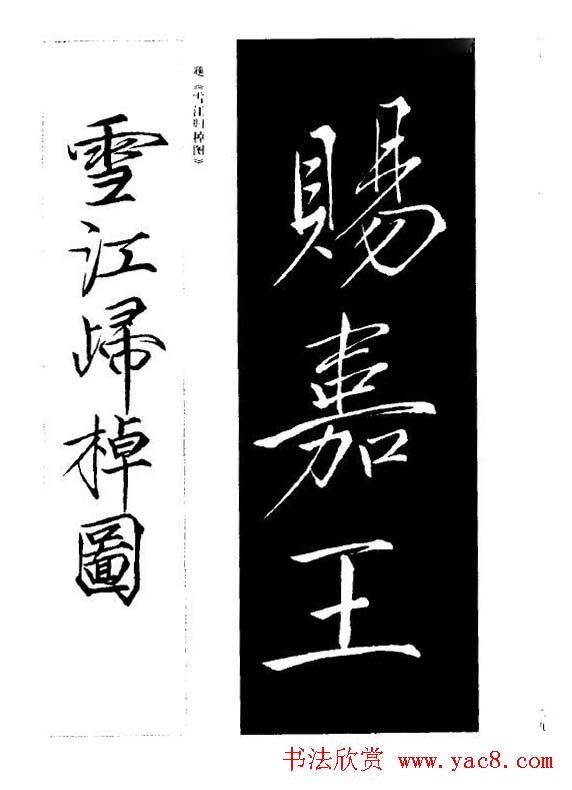 賜嘉王
題《雪江归棹图》
雪江歸棹圖
书法欣赏 www.yac8.com